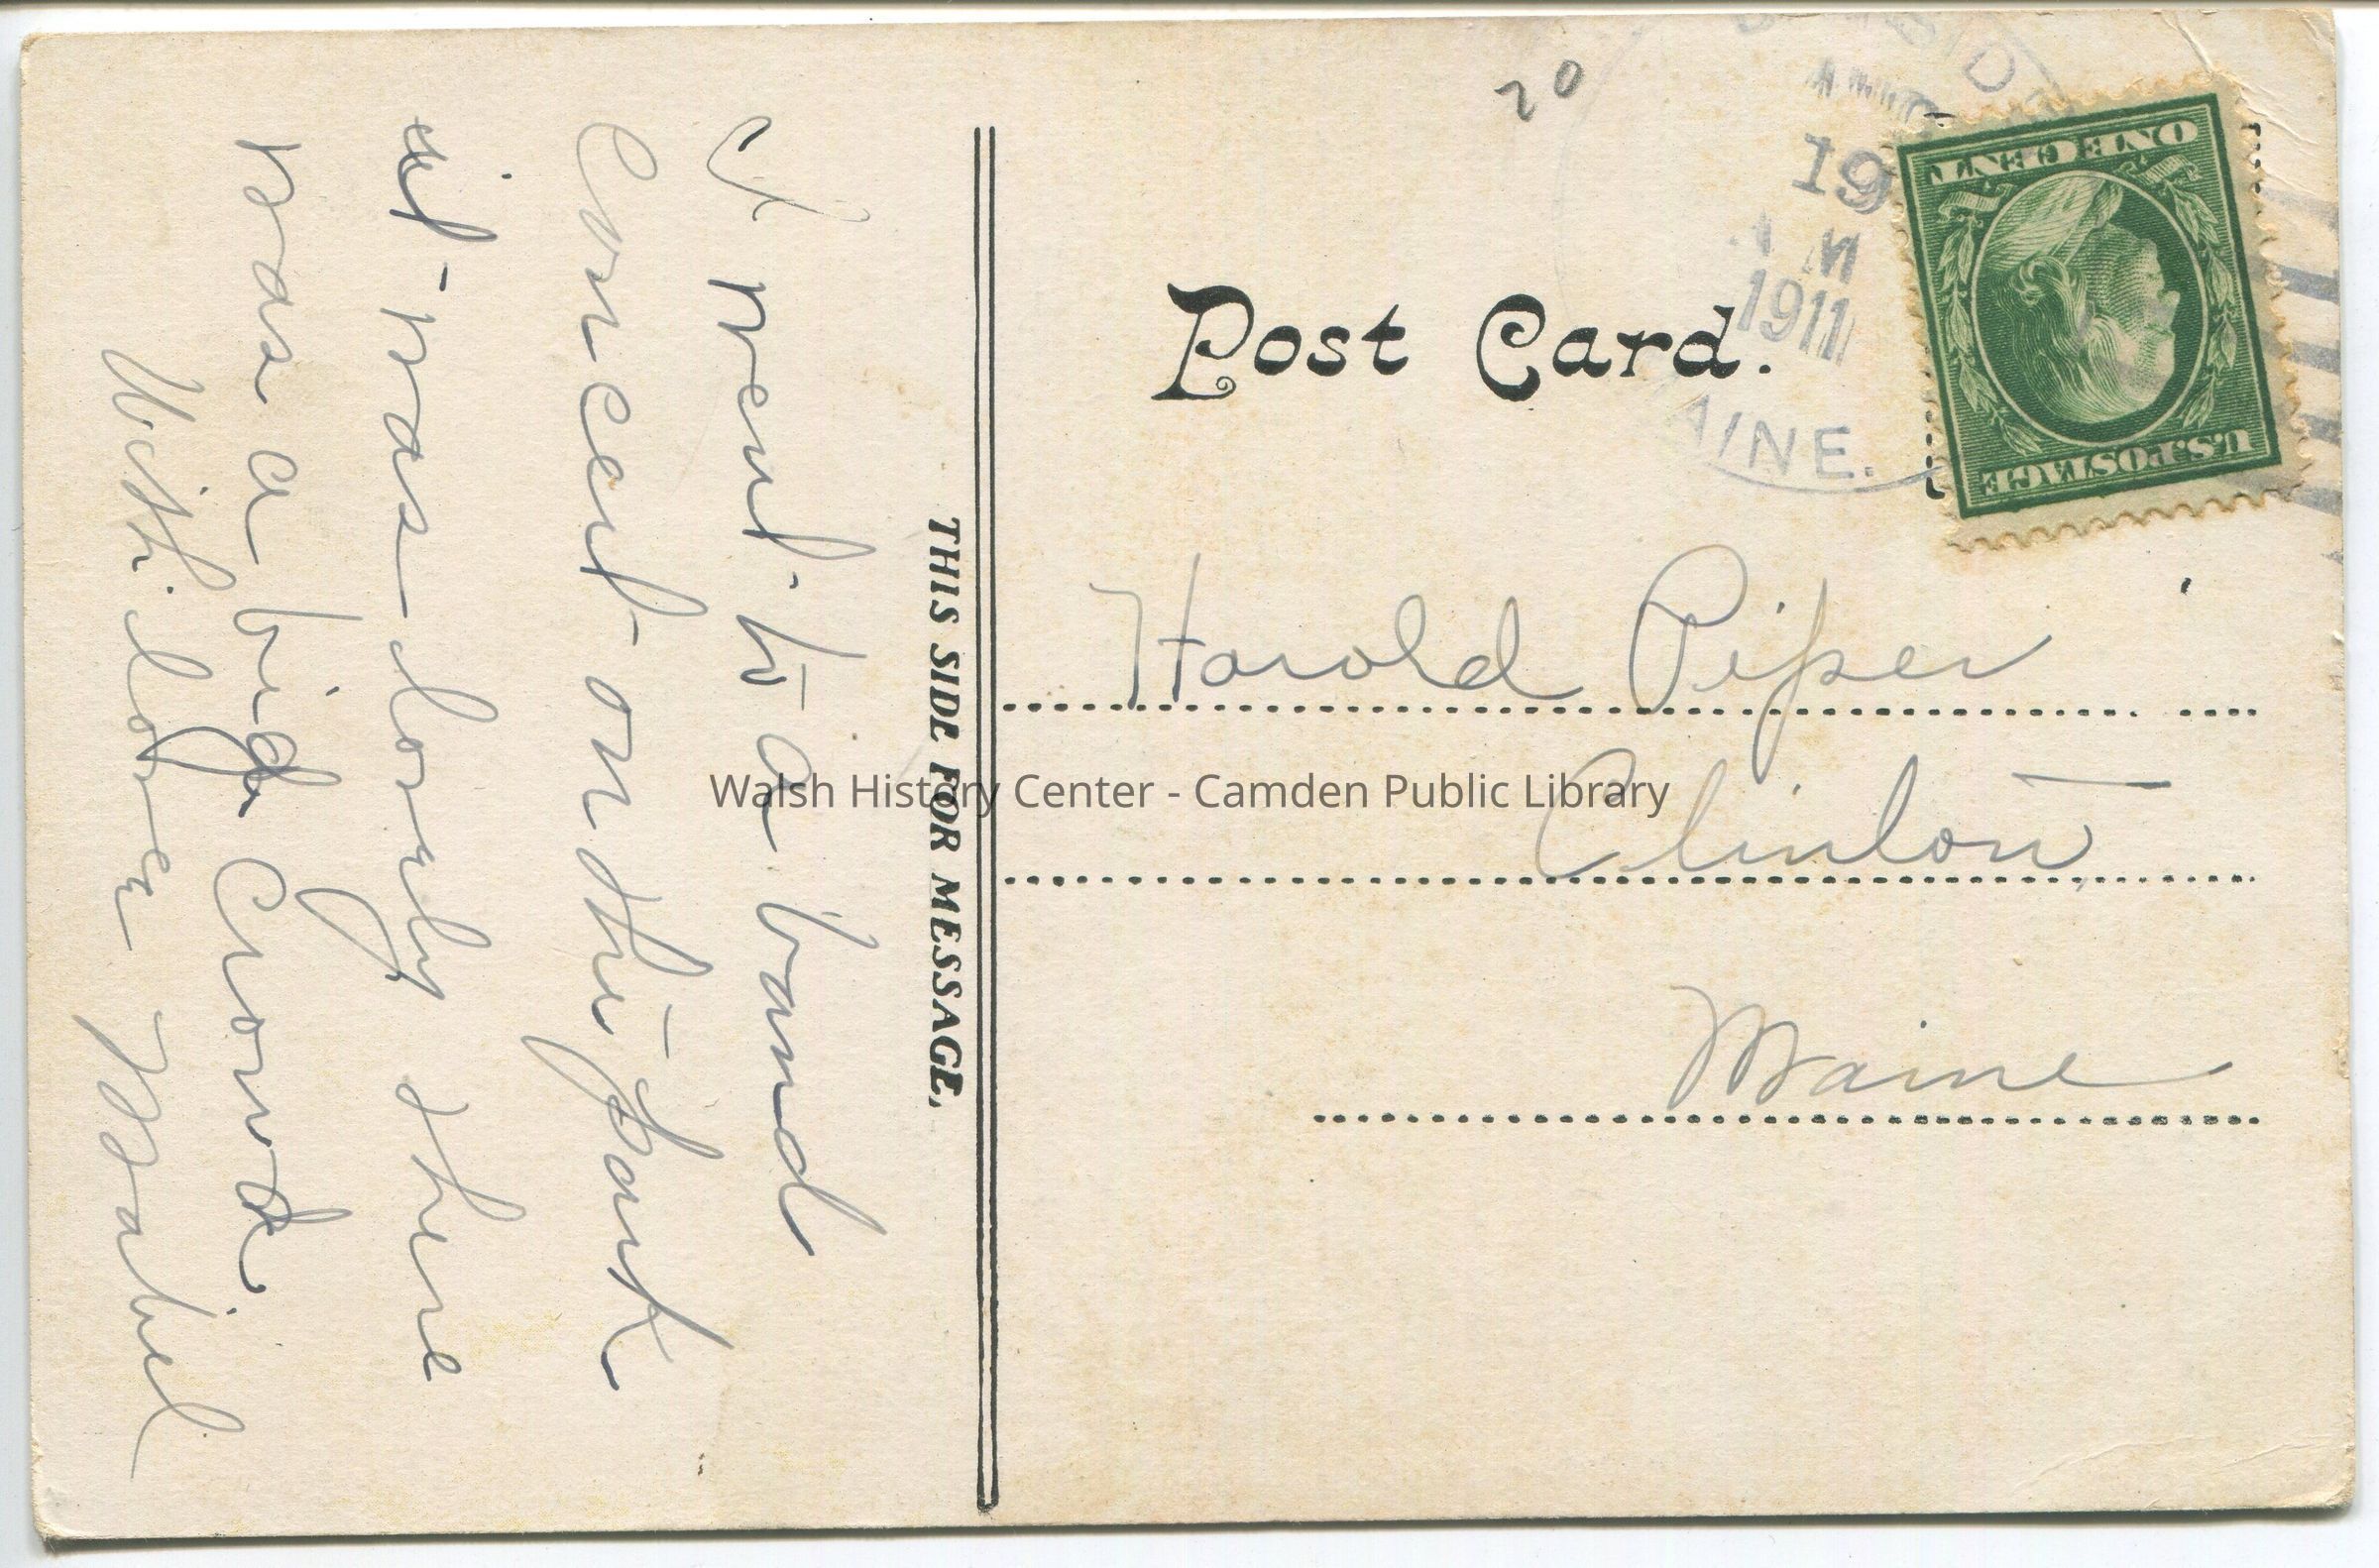 20
19
M
1911
AINE.
ONE CENT
U.S. POSTAGE
Post Card.
Harold Piper
Clinton
Maine
THIS SIDE FOR MESSAGE.
I went to a band
Concert on the park
it was lovely there
was a big crowd
With love Mabel
Walsh History Center - Camden Public Library